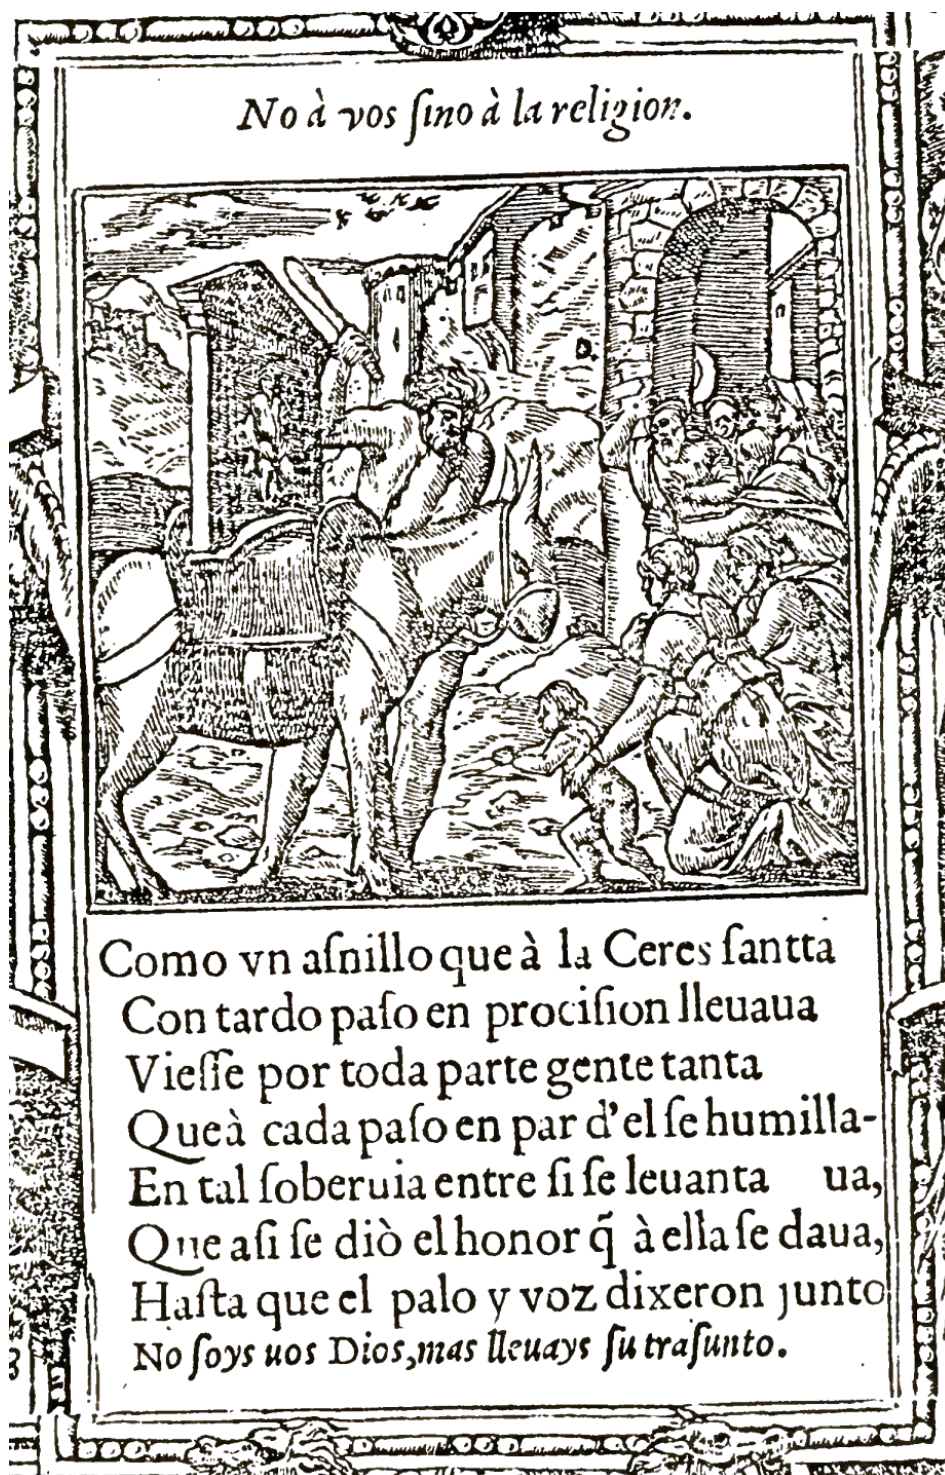 No à vos ſino à la religion.
Como vn aſnillo que à la Ceres ſantta
Con tardo paſo en prociſion lleuaua
Vieſſe por toda parte gente tanta
Que à cada paſo en par d'el ſe humilla-
En tal ſoberuia entre ſi ſe leuanta ua,
Que aſi ſe diò el honor q̃ à ella ſe daua,
Haſta que el palo y voz dixeron junto
No ſoys uos Dios, mas lleuays ſu traſunto.